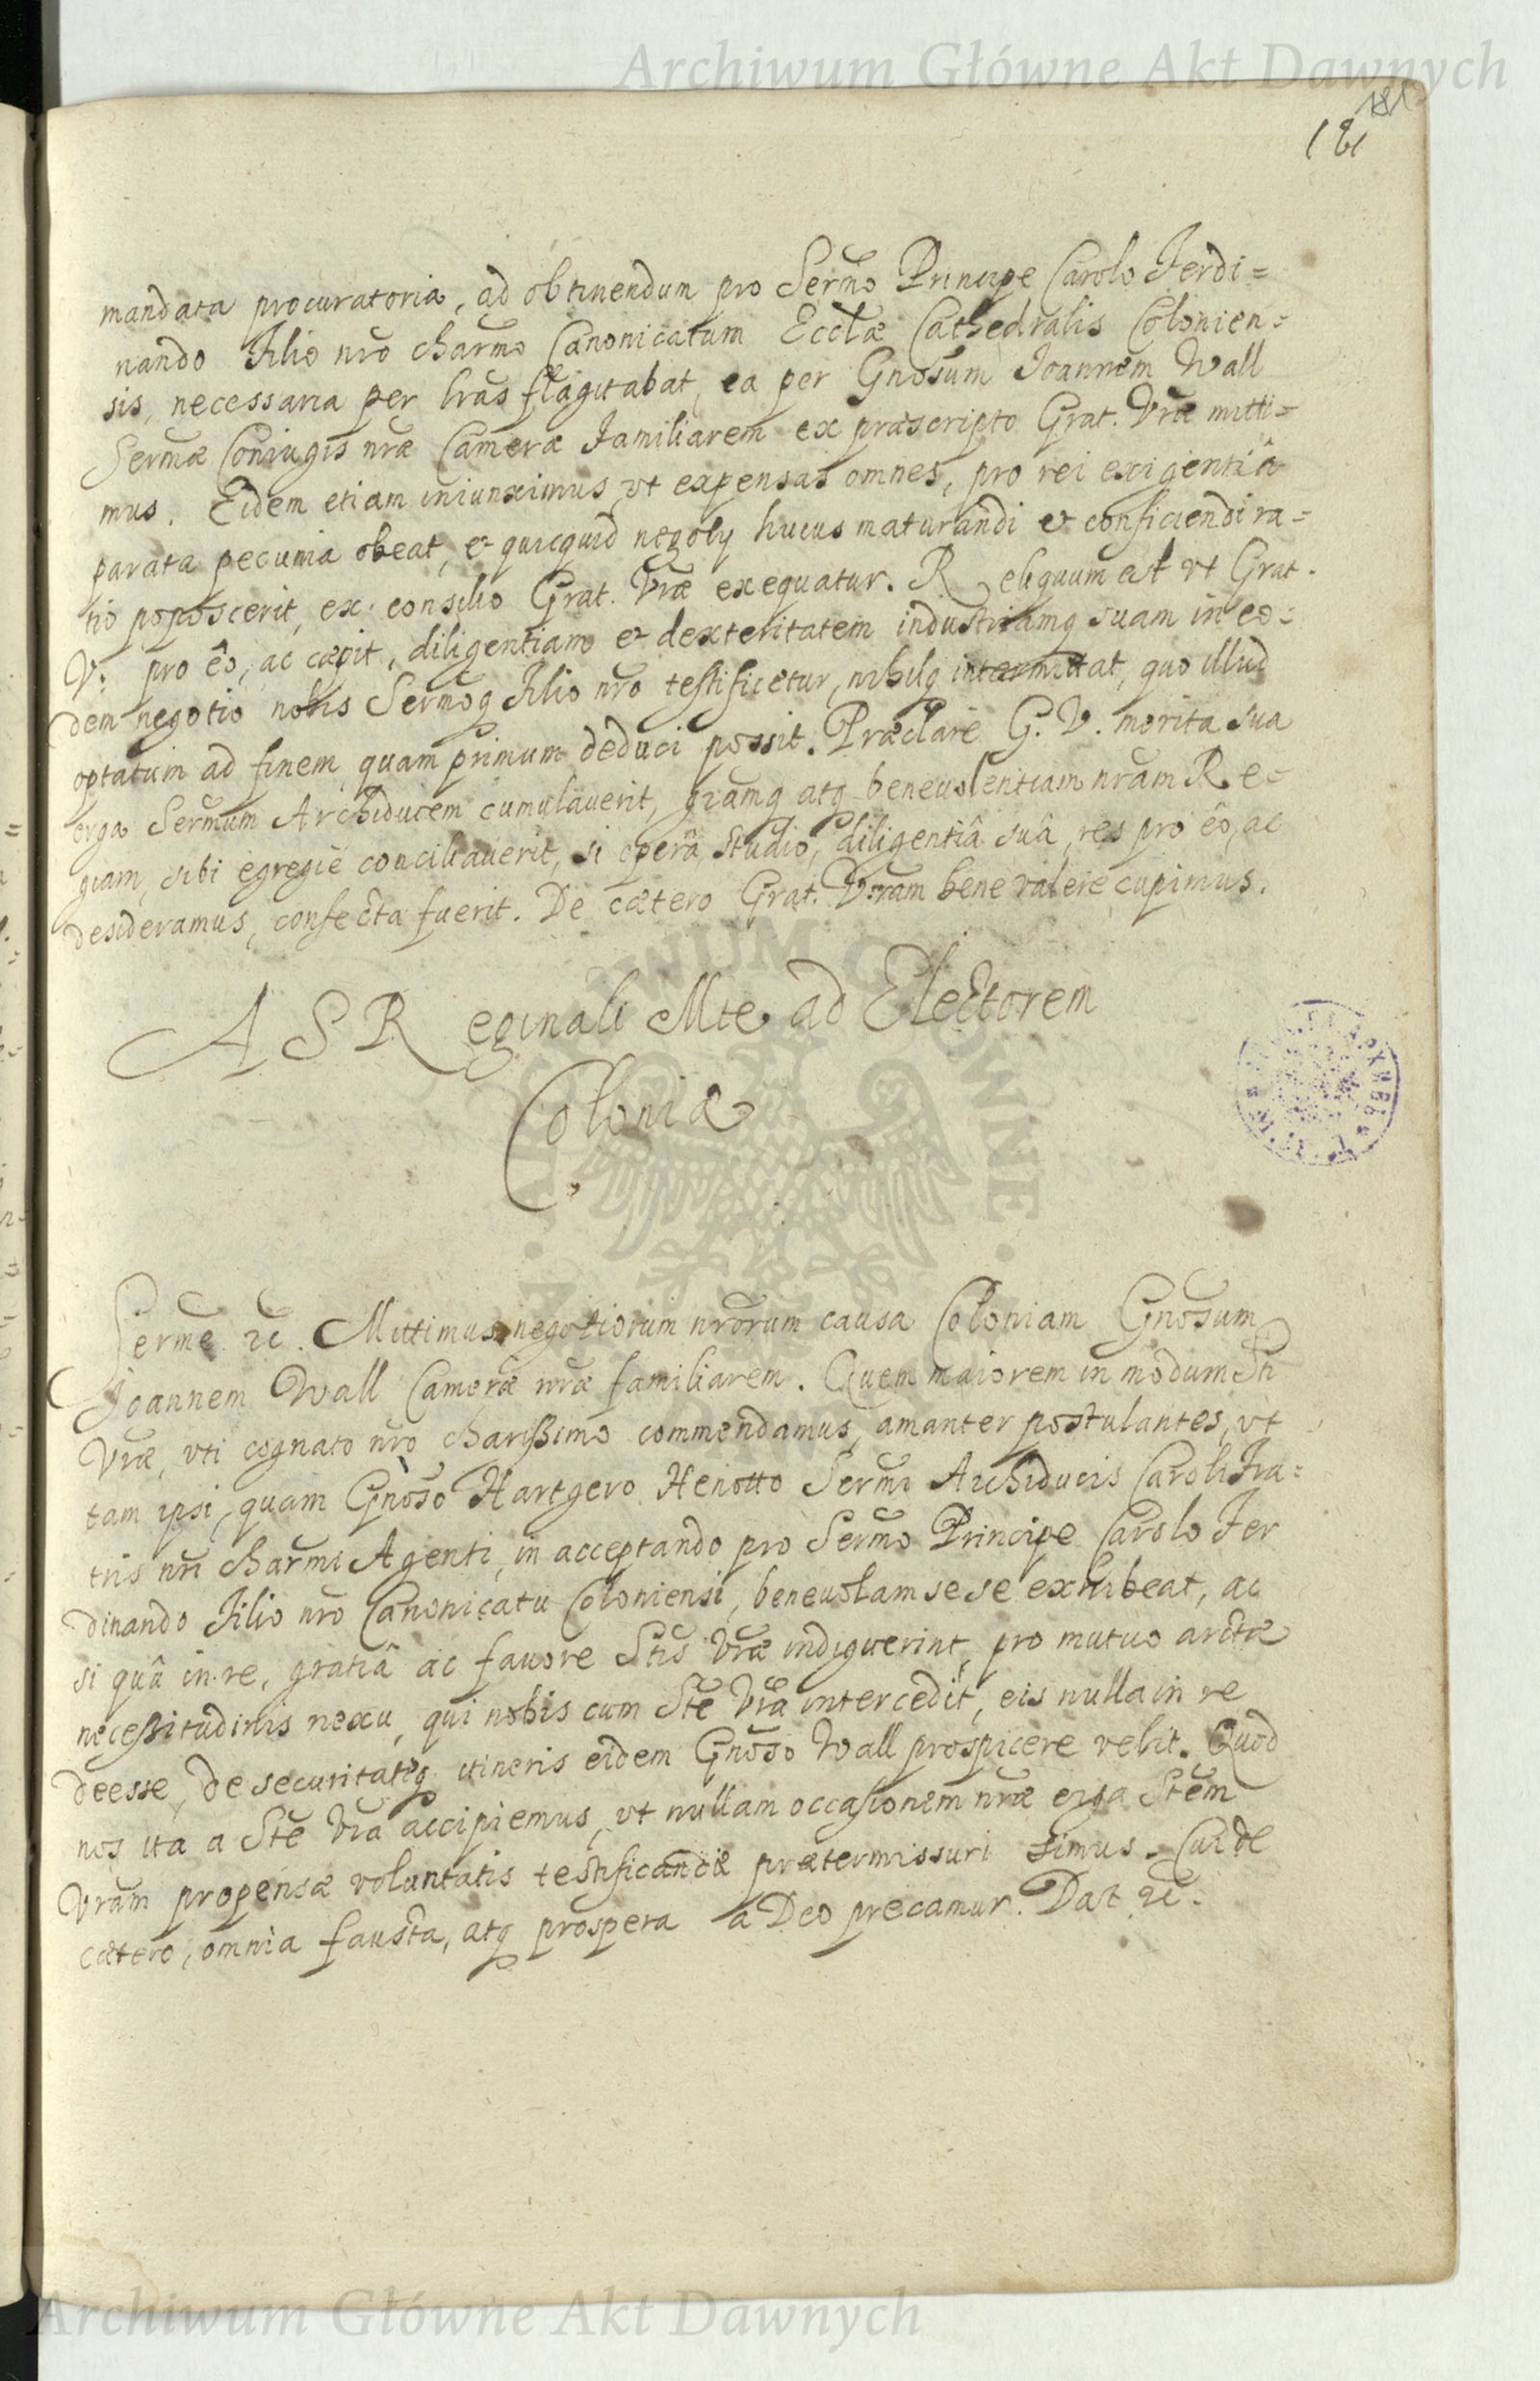 Archiwum Główne Akt Dawnych
181
181
mandata procuratoria, ad obtinendum pro Sermo Principe Carolo Ferdi=
nando Filio nro charmo Canonicatum Ecctæ Cathedralis Colonien=
sis, necessaria per lras flagitabat, ea per Gnosum Joannem Wall
Sermæ Coniugis nræ Cameræ Familiarem ex præscripto Grat. Vræ mitti=
mus. Eidem etiam iniunximus, vt expensas omnes, pro rei exigentiâ
parata pecunia obeat, et quicquid negoty huius maturandi et conficiendi ra=
tio poposcerit, ex consilio Grat. Vræ exequatur. Reliquum est vt Grat.
V: pro êo, ac cæpit, diligentiam et dexteritatem industriamq suam in eo=
dem negotio nobis Sermoq Filio nro testificetur, nihilq intermittat, quo illud
optatum ad finem quam primum deduci possit. Præclare G. V. merita sua
erga Sermum Archiducem cumulauerit, gramq atq beneuolentiam nram Re=
giam sibi egregiè conciliauerit, si operâ, studio, diligentiâ suâ, res pro êo, ac
desideramus, confecta fuerit. De cætero Grat. Vram bene valere cupimus.
A S Reginali Mte ad Electorem
Coloniæ
Serme etc. Mittimus negotiorum nrorum causa Coloniam Gnosum
Joannem Wall Cameræ nræ familiarem. Quem maiorem in modum Sti
Vræ, vti cognato nro charissimo commendamus, amanter postulantes, vt
tam ipsi, quam Gnoso Hartgero Henotto Sermi Archiducis Caroli Fra=
tris nri charmi Agenti, in acceptando pro Sermo Principe Carolo Fer
dinando Filio nro Canonicatu Coloniensi, beneuolam sese exhibeat, ac
si quâ in re, gratiâ ac fauore Stis Vræ indiguerint, pro mutuo arctæ
necessitudinis nexu, qui nobis cum Ste Vra intercedit, eis nulla in re
deesse, de securitateq itineris eidem Gnoso Wall prospicere velit. Quod
nos ita a Ste Vra accipiemus, vt nullam occasionem nræ erga Stem
Vram propensæ voluntatis testificandæ prætermissuri simus. Cui de
cætero, omnia fausta, atq prospera a Deo precamur. Dat etc.
Archiwum Główne Akt Dawnych